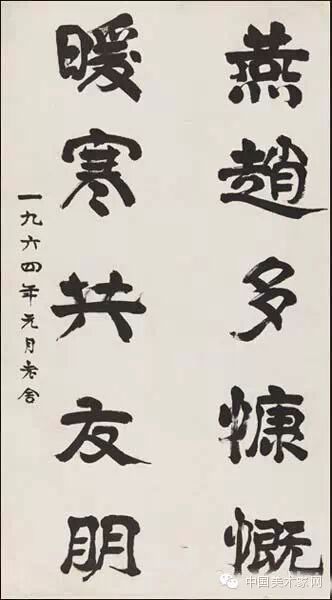 燕趙多慷慨
暖寒共友朋
一九六四年元月老舍
中国美术家网